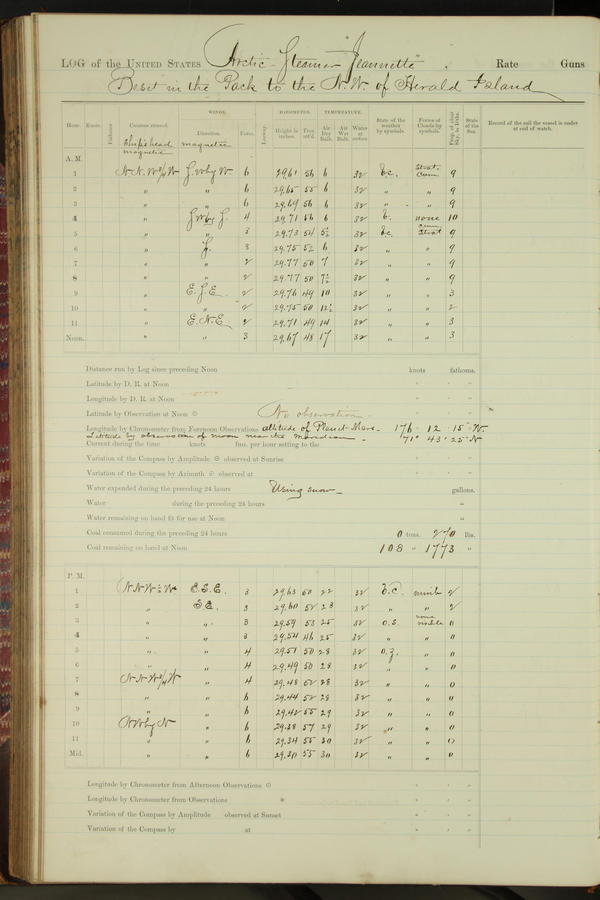 LOG of the UNITED STATES Arctic Steamer "Jeannette". Rate Guns
Beset in the Pack to the N.W. of Herald Island
WINDS. BAROMETER. TEMPERATURE.
Hour. Knots. Fathoms. Courses steered. Direction. Force. Leeway. Height in inches. Ther. att'd. Air Dry Bulb. Air Wet Bulb. Water at surface. State of the weather by symbols. Forms of Clouds by symbols. Prop. of clear Sky, in 10ths. State of the Sea. Record of the sail the vessel is under at end of watch.
Ship's head magnetic magnetic
A. M.
1 6 29.61 56 6 32 b.c. Strat. Cum. 9
2 " " 6 29.65 55 6 32 " " 9
3 " " 6 29.69 56 6 32 " " 9
4 " 4 29.71 56 6 32 b. none 10
5 " " 3 29.73 54 5½ 32 b.c. Cum. Strat 9
6 " S. 3 29.75 52 6 32 " " 9
7 " " 2 29.77 50 7 32 " " 9
8 " " 2 29.77 50 7½ 32 " " 9
9 " E.S.E. 2 29.76 49 10 32 " " 3
10 " " 2 29.75 50 12½ 32 " " 2
11 " E.N.E. 2 29.71 49 14 32 " " 3
Noon. " " 3 29.67 48 17 32 " " 3
Distance run by Log since preceding Noon knots fathoms.
Latitude by D. R. at Noon
Longitude by D. R. at Noon
Latitude by Observation at Noon ⊙ No observation
Longitude by Chronometer from Forenoon Observations altitude of Planet Mars - 176 - 12 - 15 - W.
Latitude by observation of moon near the meridian - 71° 43' 25" N
Current during the time knots fms. per hour setting to the
Variation of the Compass by Amplitude ⊙ observed at Sunrise
Variation of the Compass by Azimuth ⊙ observed at
Water expended during the preceding 24 hours Using snow gallons.
Water during the preceding 24 hours "
Water remaining on hand fit for use at Noon "
Coal consumed during the preceding 24 hours 0 tons. 270 lbs.
Coal remaining on hand at Noon 108 " 1773 "
P. M.
1 N.N.W½W E.S.E. 3 29.63 50 22 32 b.c. nimb 2
2 " S.E. 3 29.60 52 23 32 " " 2
3 " " 3 29.59 53 25 32 o.s. none visible 0
4 " " 3 29.54 46 25 32 " " 0
5 " " 4 29.51 50 28 32 " 0
6 " " 4 29.49 50 28 32 " " 0
7 " 4 29.48 52 28 32 " " 0
8 " " 6 29.44 52 28 32 " " 0
9 " " 6 29.42 55 29 32 " " 0
10 NWbyN " 6 29.38 57 29 32 " " 0
11 " " 6 29.34 55 30 32 " " 0
Mid. " " 6 29.30 55 30 32 " " 0
Longitude by Chronometer from Afternoon Observations ⊙
Longitude by Chronometer from Observations *
Variation of the Compass by Amplitude observed at Sunset
Variation of the Compass by at